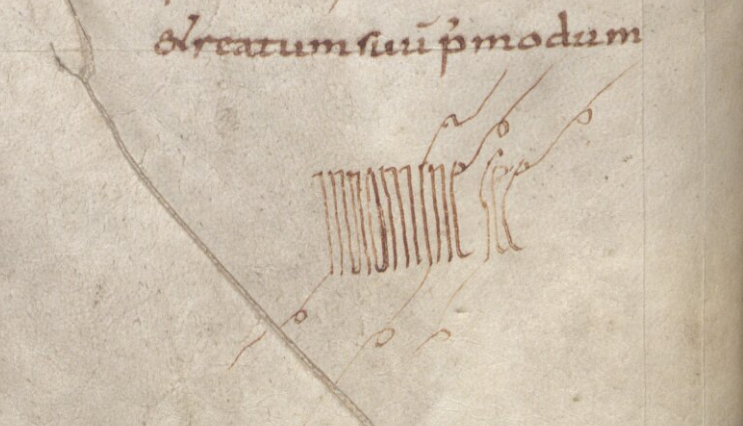 & reatum suū p̄modum
innomine sce